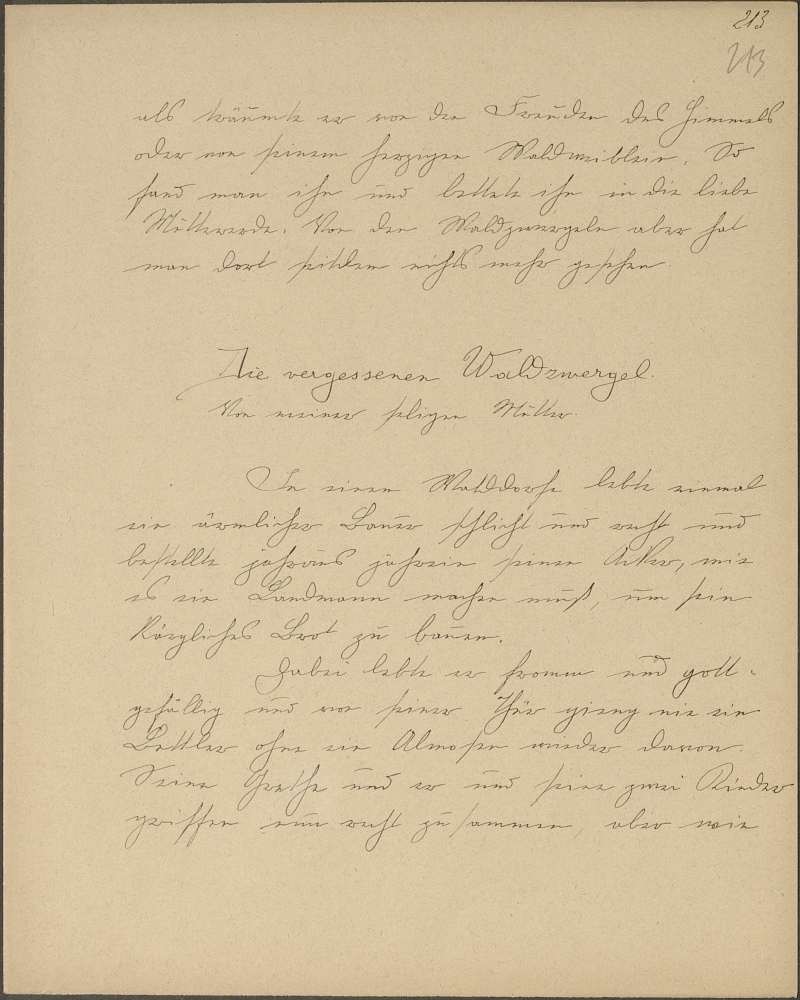 213
213
als träumte er von den Freuden des Himmels
oder von seinem herzigen Waldweiblein. So
fand man ihn und bettete ihn in die liebe
Muttererde. Von den Waldzwergeln aber hat
man dort seitdem nichts mehr gesehen.
Die vergessenen Waldzwergel.
Von meiner seligen Mutter.
In einem Walddorfe lebte einmal
ein ärmlicher Bauer schlicht und recht und
bestellte jahraus jahrein seinen Acker, wie
es ein Landmann machen muß, um sein
kärgliches Brot zu bauen.
Dabei lebte er fromm und gott-
gefällig und von seiner Thür gieng nie ein
Bettler ohne ein Almosen wieder davon.
Seine Grethe und er und seine zwei Kinder
griffen nun recht zusammen, aber wie